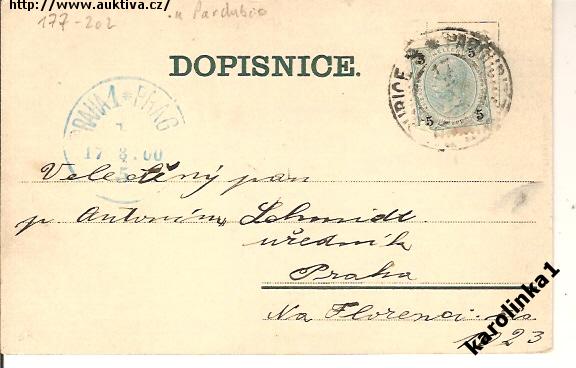 http://www.auktiva.cz/
177-202
u Pardubic
DOPISNICE.
PRAHA 1 * PRAG
17 8.00
5
5
5
5
Velectěný pan
p. Antonín Schmidt
úředník
Praha
Na Florenci
1023
karolinka1